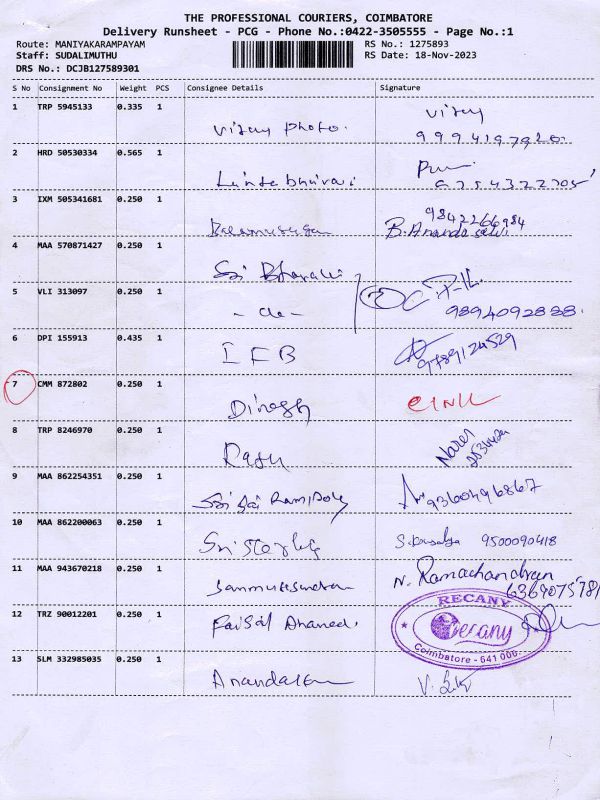 THE PROFESSIONAL COURIERS, COIMBATORE
Delivery Runsheet - PCG - Phone No.:0422-3505555 - Page No.:1
Route: MANIYAKARAMPAYAM RS No.: 1275893
Staff: SUDALIMUTHU RS Date: 18-Nov-2023
DRS No.: DCJB127589301
S No Consignment No Weight PCS Consignee Details Signature
1 TRP 5945133 0.335 1 Vijay Photo. Vijay
9994197920
2 HRD 50530334 0.565 1
9754322705
3 IXM 505341681 0.250 1 Balamurugan 9842266984
B. Anandaselvi
4 MAA 570871427 0.250 1 Sri Bhavani
5 VLI 313097 0.250 1 - do - 9894092838.
6 DPI 155913 0.435 1 IFB 9789124529
7 CMM 872802 0.250 1 Dinesh
8 TRP 8246970 0.250 1 Raju Naren
9 MAA 862254351 0.250 1 Sri Sai 9360496867
10 MAA 862200063 0.250 1 9500090418
11 MAA 943670218 0.250 1 Sanmugasundaram N. Ramachandran
6369075781
12 TRZ 90012201 0.250 1 Faisal Ahamed. RECANY
Recany
Coimbatore - 641 006.
13 SLM 332985035 0.250 1 Anandaram